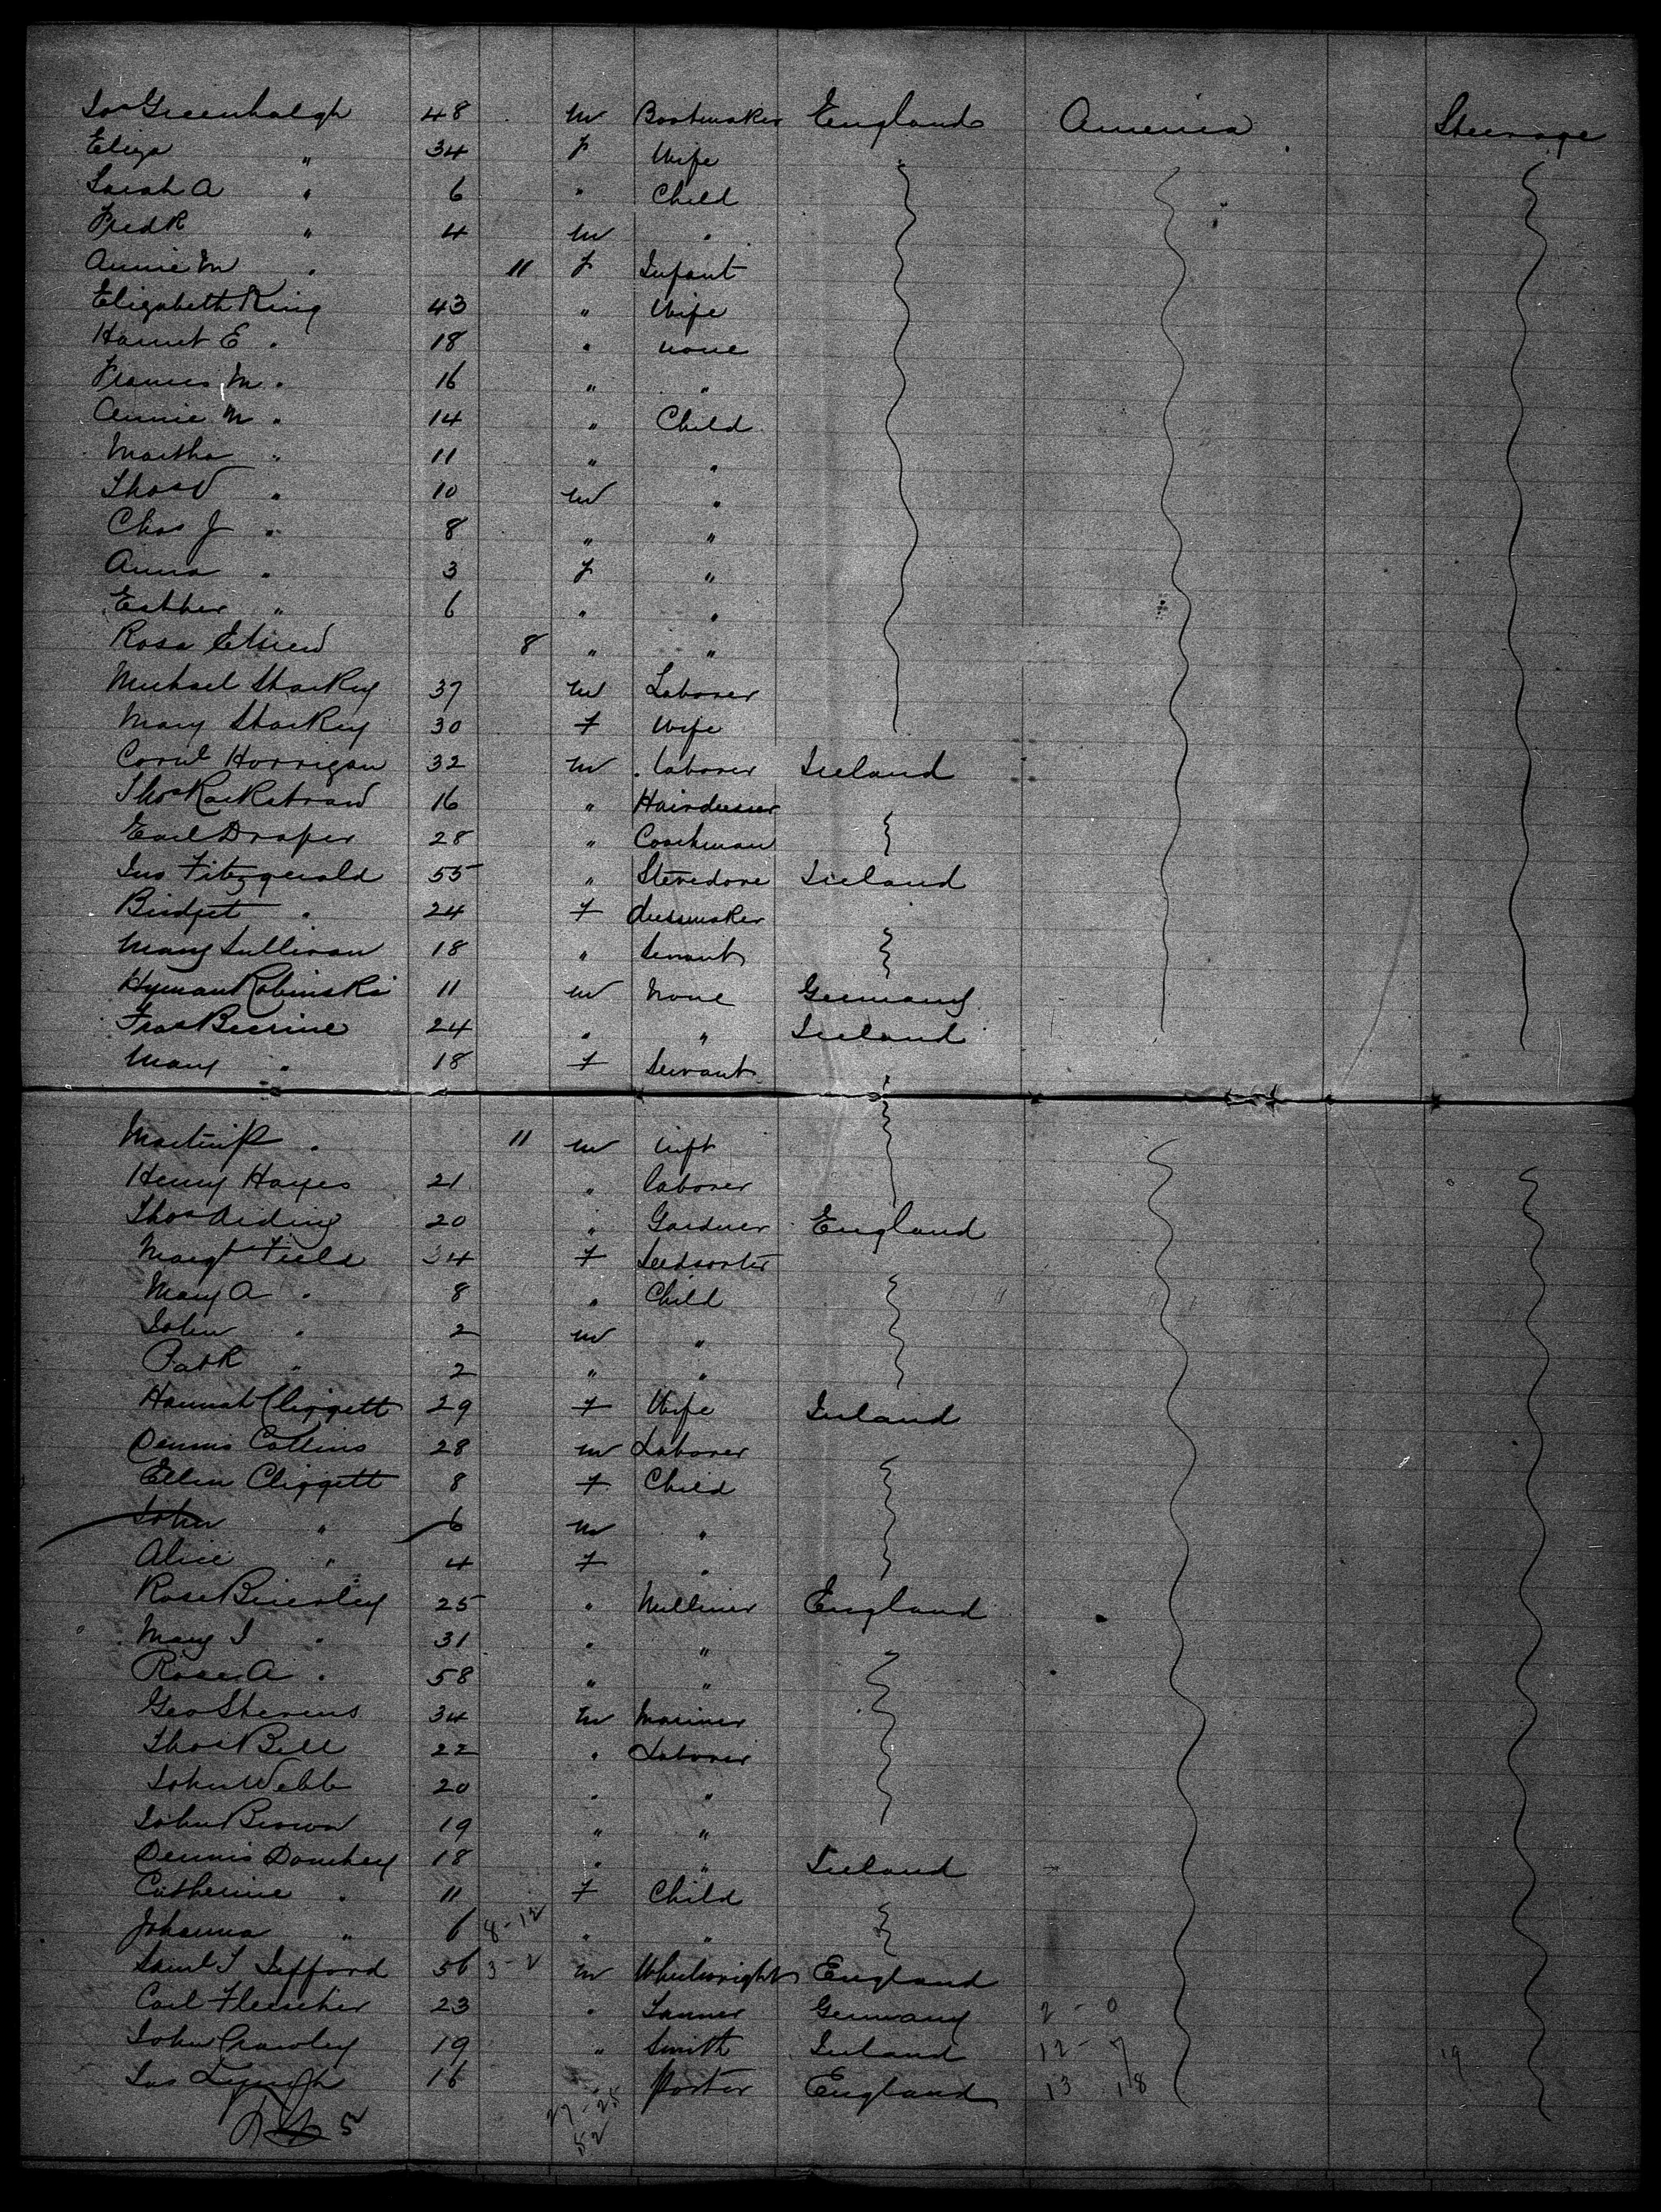 Jos Greenhalgh 48 M Bootmaker England America Steerage
Eliza " 34 F Wife
Sarah A " 6 " Child
Fredk " 4 M "
Annie M " 11 F Infant
Elizabeth King 43 " Wife
Harriet E " 18 " None
Frances M " 16 " "
Annie M " 14 " Child
Martha " 11 " "
Thos " 10 M "
Chas J " 8 " "
Anna " 3 F "
Esther " 6 " "
Rosa 8 " "
Michael Sharkey 37 M Laborer
Mary Sharkey 30 F Wife
Cornl Horrigan 32 M Laborer Ireland
Thos Rackstraw 16 " Hairdresser
Earl Draper 28 " Coachman
Jno Fitzgerald 55 " Stevedore Ireland
Bridget " 24 F dressmaker
Mary Sullivan 18 " Servant
Hyman Robinski 11 M None Germany
Fras 24 " " Ireland
Mary " 18 F Servant
Martin P " 11 M Inft
Henry Hayes 21 " laborer
Thos Aiding 20 " Gardner England
Margt Field 34 F Seedsorter
Mary A " 8 " Child
John " 2 M "
Patk " 2 " "
Hannah Cliggett 29 F Wife Ireland
Dennis Collins 28 M Laborer
Ellen Cliggett 8 F Child
John " 6 M "
Alice " 4 F "
Rose Brierley 25 " Milliner England
Mary J " 31 " "
Rose A " 58 " "
Geo Stevens 34 M Mariner
Thos Bell 22 " Laborer
John Webb 20 " "
John Brown 19 " "
Dennis Donohey 18 " " Ireland
Catherine " 11 F Child
Johanna " 6 8-12 " "
Saml J Jefford 56 3-2 M Wheelwright England
Carl Fleischer 23 " Tanner Germany 2-0
John Crowley 19 " Smith Ireland 12-7 19
Jas Lynch 16 " Porter England 13 18
5 27-25
52